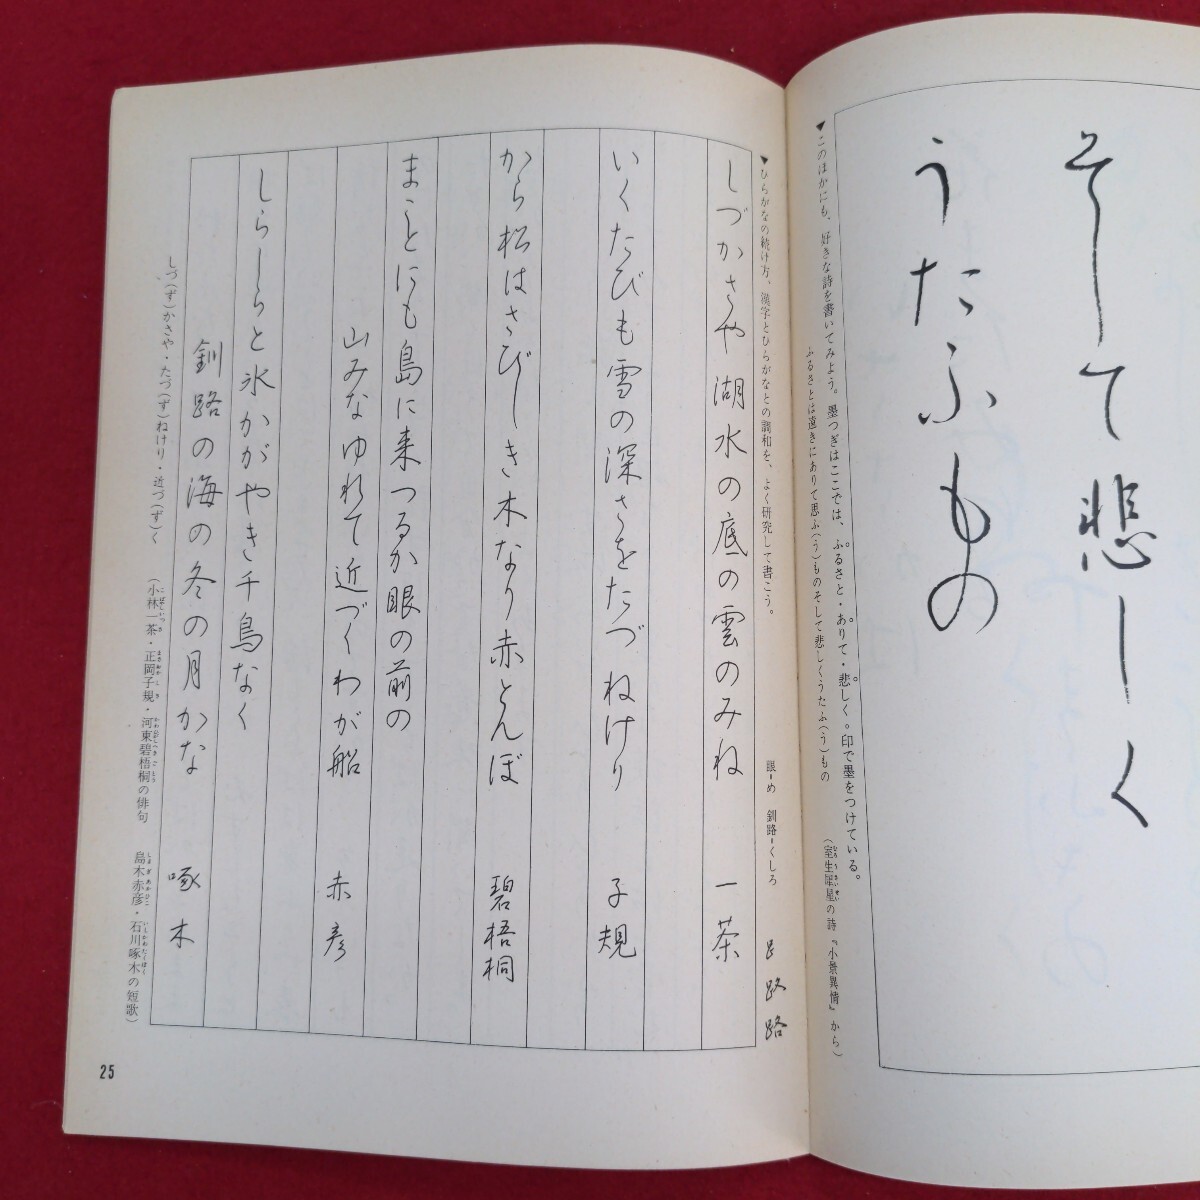 そして悲しく
うたふもの
▼このほかにも、好きな詩を書いてみよう。墨つぎはここでは、ふるさと・ありて・悲しく。印で墨をつけている。
ふるさとは遠きにありて思ふ(う)ものそして悲しくうたふ(う)もの
(室生犀星の詩『小景異情』から)
▼ひらがなの続け方、漢字とひらがなとの調和を、よく研究して書こう。
眼-め 釧路-くしろ
しづかさや湖水の底の雲のみね 一茶
いくたびも雪の深さをたづねけり 子規
から松はさびしき木なり赤とんぼ 碧梧桐
まことにも島に来つるか眼の前の
山みなゆれて近づくわが船 赤彦
しらしらと氷かがやき千鳥なく
釧路の海の冬の月かな 啄木
しづ(ず)かさや・たづ(ず)ねけり・近づ(ず)く
(小林一茶・正岡子規・河東碧梧桐の俳句
島木赤彦・石川啄木の短歌)
25